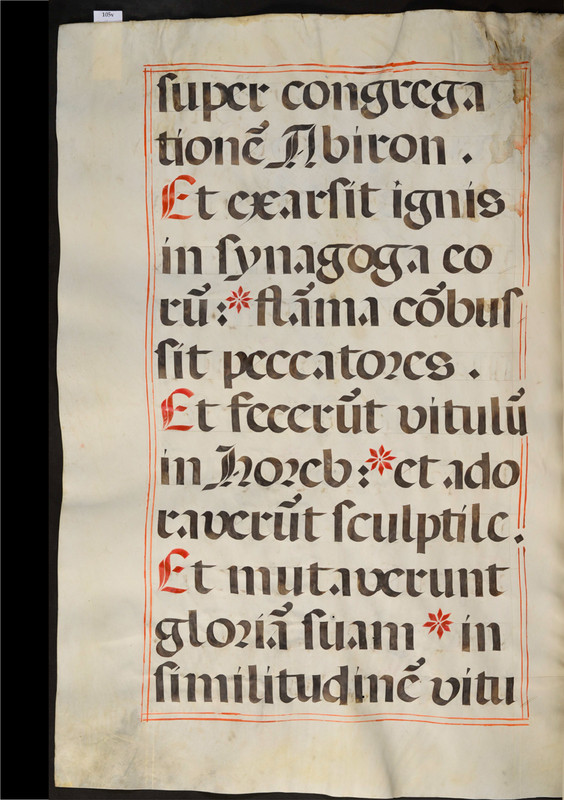 ſuper congrega
tionẽ Abiron .
Et exarſit ignis
in ſynagoga co
rũ : * flãma cõbuſ
ſit peccatoꝛes .
Et fecerũt vitulũ
in Hoꝛeb : * et ado
raverũt ſculptile .
Et mutaverunt
gloꝛiã ſuam * in
ſimilitudinẽ vitu